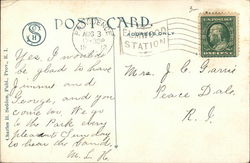 POST CARD.
AUG 3
ADDRESS ONLY
STATION
Yes, I would
be glad to have
Jimmie and
George, and you
come too. We go
to the Park every
pleasant Sunday
to hear the band.
M. L. H.
Mrs. J. C. Garris
Peace Dale,
R. I.
Charles H. Seddon, Publ., Prov., R. I.